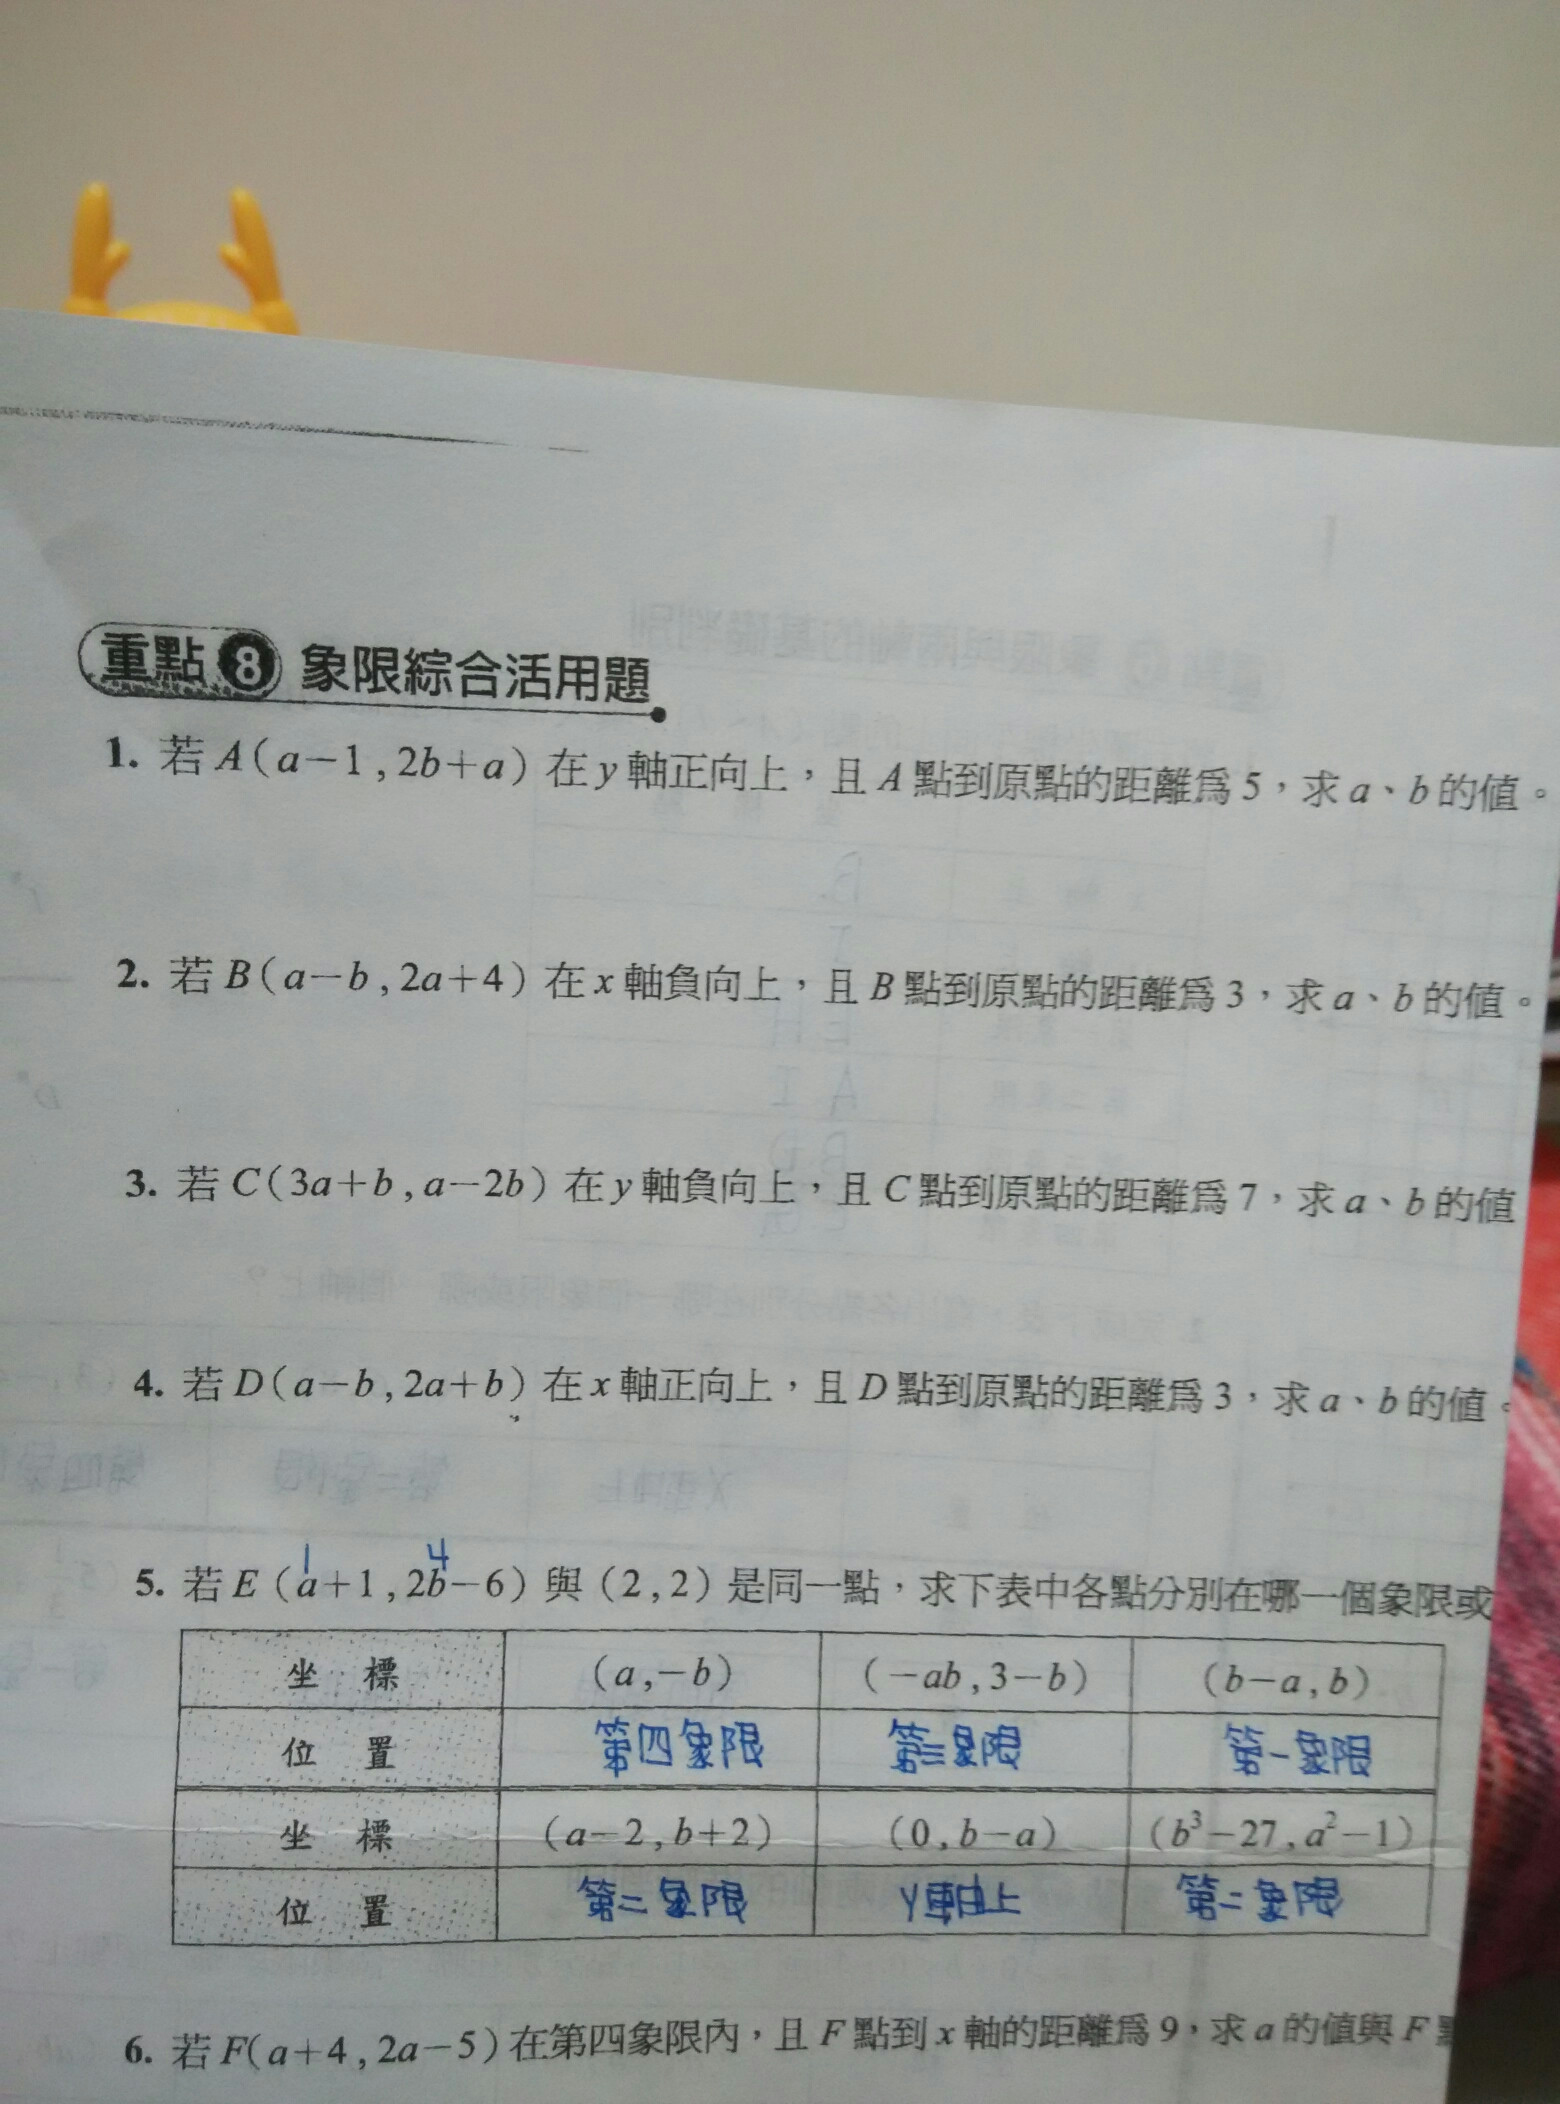 重點 8 象限綜合活用題
1. 若 A(a-1,2b+a) 在 y 軸正向上,且 A 點到原點的距離為 5,求 a、b 的值。
2. 若 B(a-b,2a+4) 在 x 軸負向上,且 B 點到原點的距離為 3,求 a、b 的值。
3. 若 C(3a+b,a-2b) 在 y 軸負向上,且 C 點到原點的距離為 7,求 a、b 的值
4. 若 D(a-b,2a+b) 在 x 軸正向上,且 D 點到原點的距離為 3,求 a、b 的值。
1 4
5. 若 E(a+1,2b-6) 與 (2,2) 是同一點,求下表中各點分別在哪一個象限或
坐標 (a,-b) (-ab,3-b) (b-a,b)
位置 第四象限 第三象限 第一象限
坐標 (a-2,b+2) (0,b-a) (b³-27,a²-1)
位置 第二象限 y軸上 第二象限
6. 若 F(a+4,2a-5) 在第四象限內,且 F 點到 x 軸的距離為 9,求 a 的值與 F